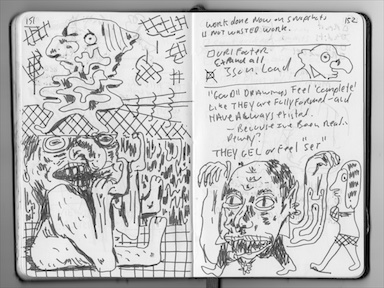 151
WORK DONE NOW ON SNAPSHOTS
IS NOT WASTED WORK.
152
EXPAND ALL
"GOOD" DRAWINGS FEEL 'COMPLETE'
LIKE THEY ARE FULLY FORMED - AND
HAVE ALWAYS EXISTED.
- BECAUSE I'VE BEEN READING
DEWEY?
THEY GEL OR FEEL "SET"